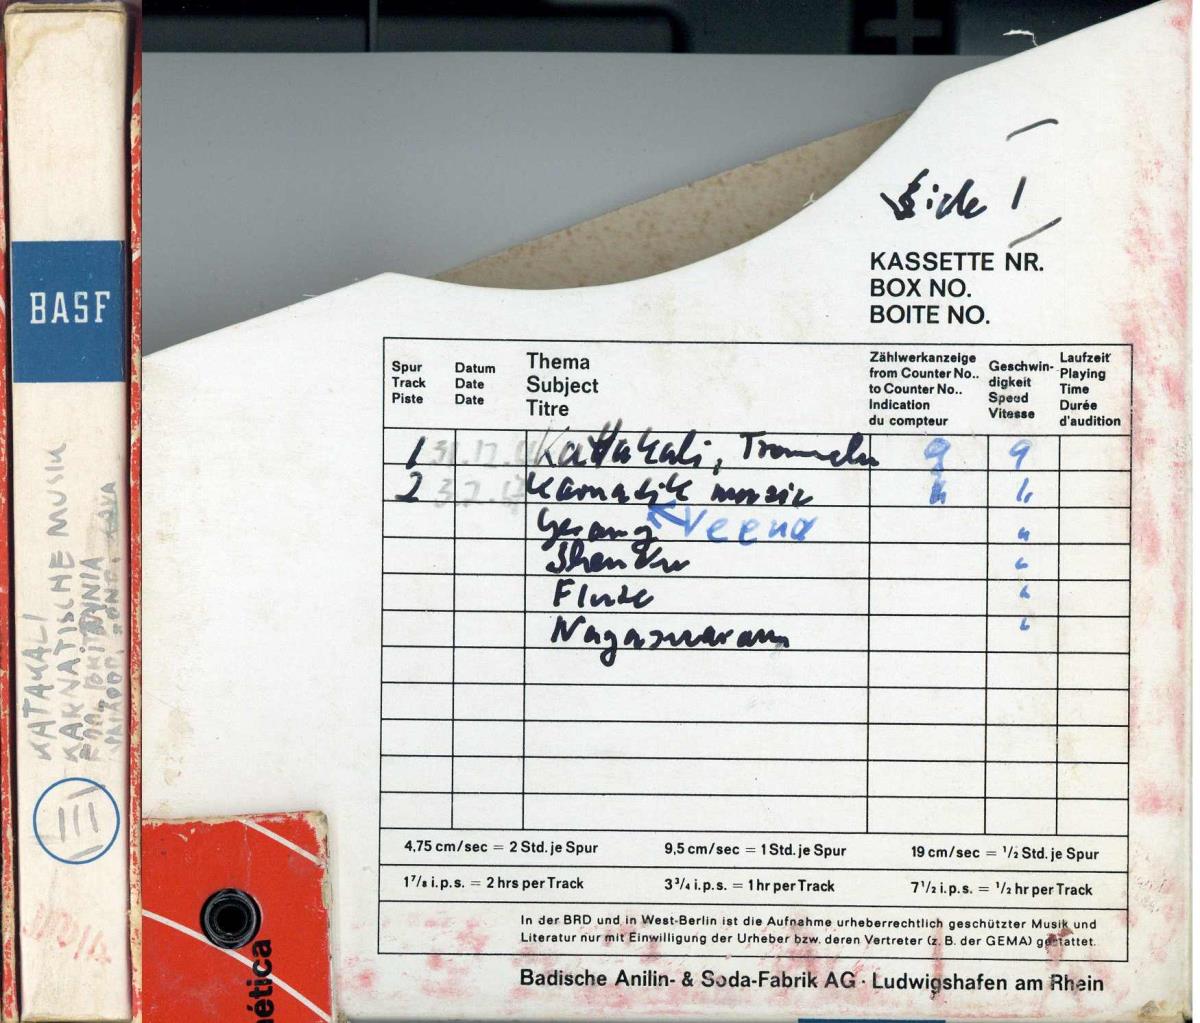 BASF
KATAKALI
KARNATISCHE MUSIK
III
Side 1
KASSETTE NR.
BOX NO.
BOITE NO.
Spur
Track
Piste
Datum
Date
Date
Thema
Subject
Titre
Zählwerkanzeige
from Counter No..
to Counter No..
Indication
du compteur
Geschwin-
digkeit
Speed
Vitesse
Laufzeit
Playing
Time
Durée
d'audition
1 Kathakali, Trommeln 9 9
2 Karnatik music "
Gesang Veena "
"
Flute "
Nagaswaram "
4,75 cm/sec = 2 Std. je Spur 9,5 cm/sec = 1 Std. je Spur 19 cm/sec = 1/2 Std. je Spur
1 7/8 i.p.s. = 2 hrs per Track 3 3/4 i.p.s. = 1 hr per Track 7 1/2 i.p.s. = 1/2 hr per Track
In der BRD und in West-Berlin ist die Aufnahme urheberrechtlich geschützter Musik und
Literatur nur mit Einwilligung der Urheber bzw. deren Vertreter (z. B. der GEMA) gestattet.
Badische Anilin- & Soda-Fabrik AG · Ludwigshafen am Rhein
ética